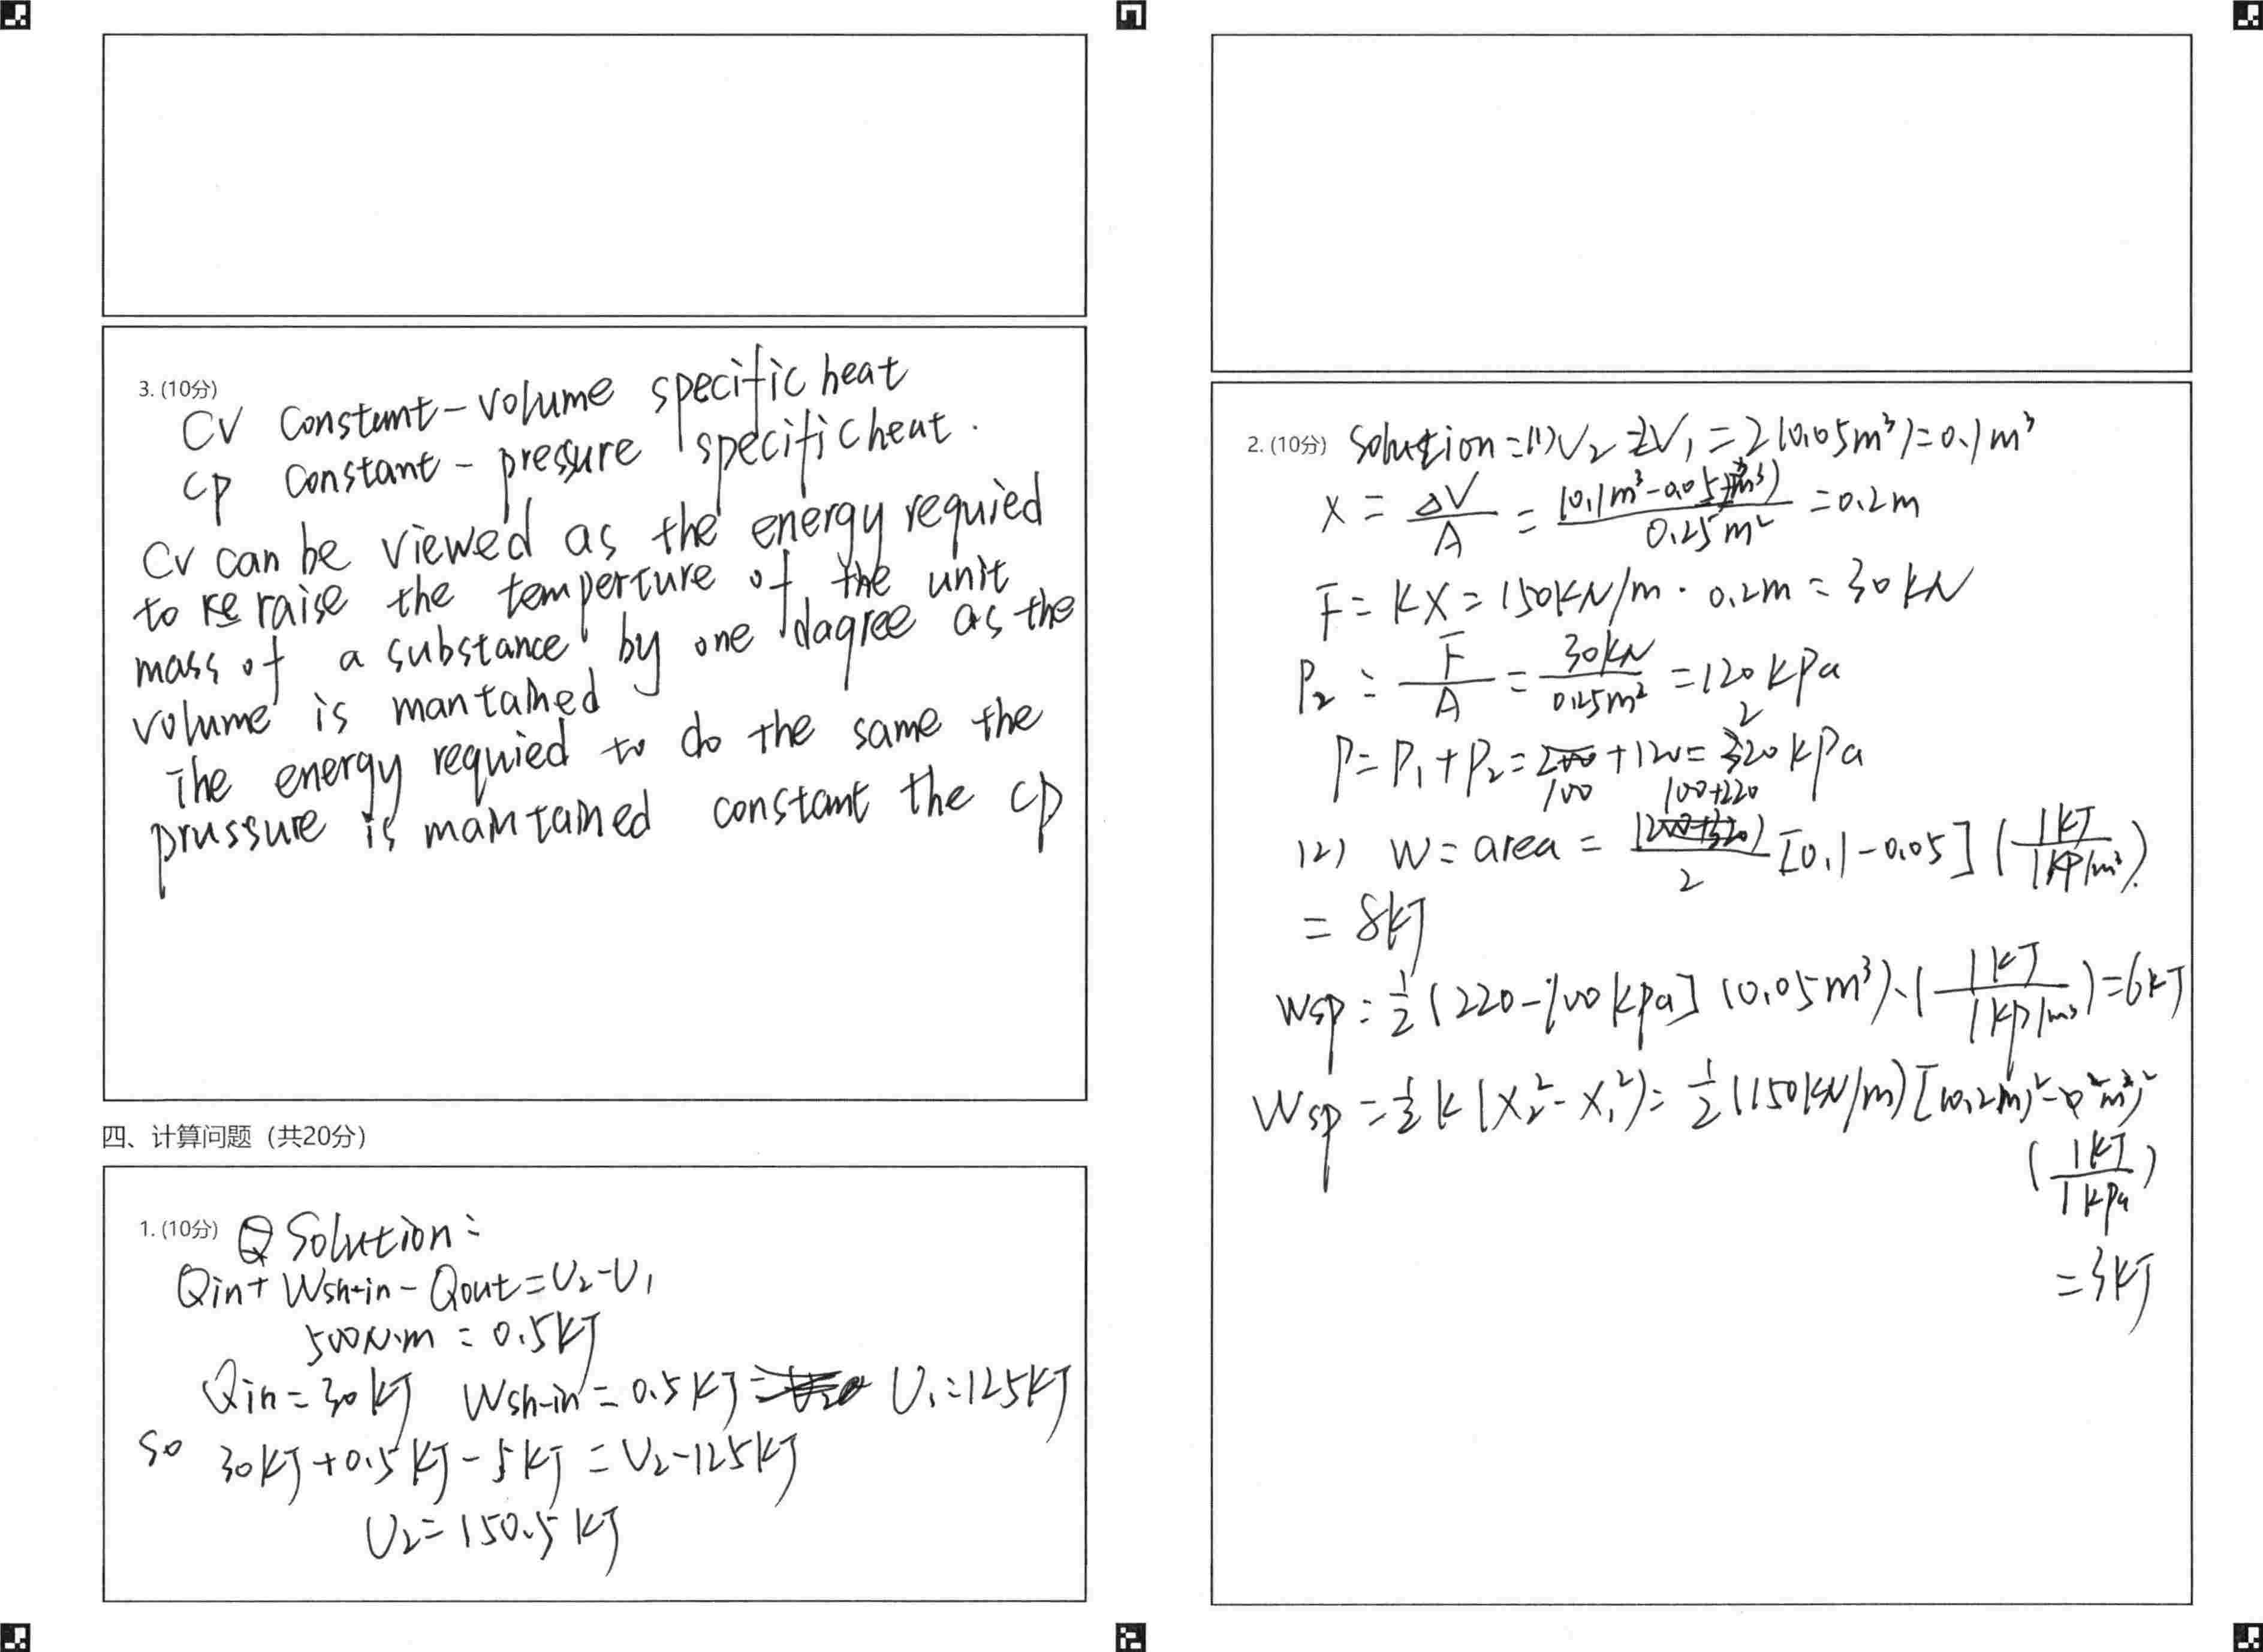 3. (10分)
CV Constant-volume specific heat
CP Constant-pressure specific heat.
Cv can be viewed as the energy requied
to raise the temperture of the unit
mass of a substance by one dagree as the
volume is mantained
The energy requied to do the same the
prussure is maintained constant the cp
四、计算问题（共20分）
1. (10分) Solution:
Qin+Wsh-in-Qout=U₂-U₁
500N·m = 0.5KJ
Qin=30KJ Wsh-in=0.5KJ U₁=125KJ
so 30KJ+0.5KJ-5KJ=U₂-125KJ
U₂=150.5KJ
2. (10分) Solution:(1)V₂=2V₁=2(0.05m³)=0.1m³
X = ΔV/A = (0.1m³-0.05m³)/0.25m² = 0.2m
F=KX=150KN/m·0.2m=30KN
P₂ = F/A = 30KN/0.25m² = 120KPa
P=P₁+P₂=100+120=220KPa
(2) W=area=(100+220)/2[0.1-0.05](1KJ/1KP/m³)
= 8KJ
Wsp=1/2(220-100KPa](0.05m³)·(1KJ/1KP/m³)=6KJ
Wsp=1/2K(X₂²-X₁²)=1/2(150KN/m)[(0.2m)²-0²m²]
(1KJ/1KPa)
=3KJ